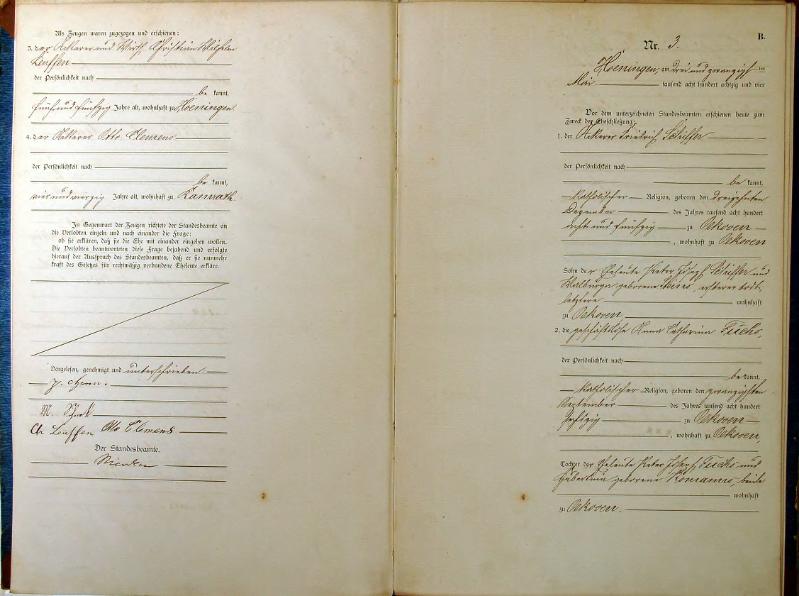 Als Zeugen waren zugezogen und erschienen:
3. der Ackerer und Wirth Christian Wilhelm
Leuffen
der Persönlichkeit nach
be kannt,
fünfundfünfzig Jahre alt, wohnhaft zu Hoeningen
4. der Ackerer Otto Clemens
der Persönlichkeit nach
be kannt,
vierundvierzig Jahre alt, wohnhaft zu Ramrath
In Gegenwart der Zeugen richtete der Standesbeamte an
die Verlobten einzeln und nach einander die Frage:
ob sie erklären, daß sie die Ehe mit einander eingehen wollen.
Die Verlobten beantworteten diese Frage bejahend und erfolgte
hierauf der Ausspruch des Standesbeamten, daß er sie nunmehr
kraft des Gesetzes für rechtmäßig verbundene Eheleute erkläre.
Vorgelesen, genehmigt und unterschrieben
M.
Ch Leuffen Otto Clemens
Der Standesbeamte.
B.
Nr. 3.
Hoeningen, am drei und zwanzigsten
Mai tausend acht hundert achtzig und vier
Vor dem unterzeichneten Standesbeamten erschienen heute zum
Zweck der Eheschließung:
1. der Ackerer Friedrich
der Persönlichkeit nach
be kannt,
katholischer Religion, geboren den dreizehnten
Dezember des Jahres tausend acht hundert
acht und fünfzig zu Oekoven
, wohnhaft zu Oekoven
Sohn der Eheleute Peter Joseph und
Walburga geborene, ersterer todt,
letztere wohnhaft
zu Oekoven.
2. die geschäftslose Anna Catharina
der Persönlichkeit nach
be kannt,
katholischer Religion, geboren den zwanzigsten
September des Jahres tausend acht hundert
sechzig zu Oekoven
, wohnhaft zu Oekoven,
Tochter der Eheleute Peter Joseph und
Hubertina geborene, beide
wohnhaft
zu Oekoven.